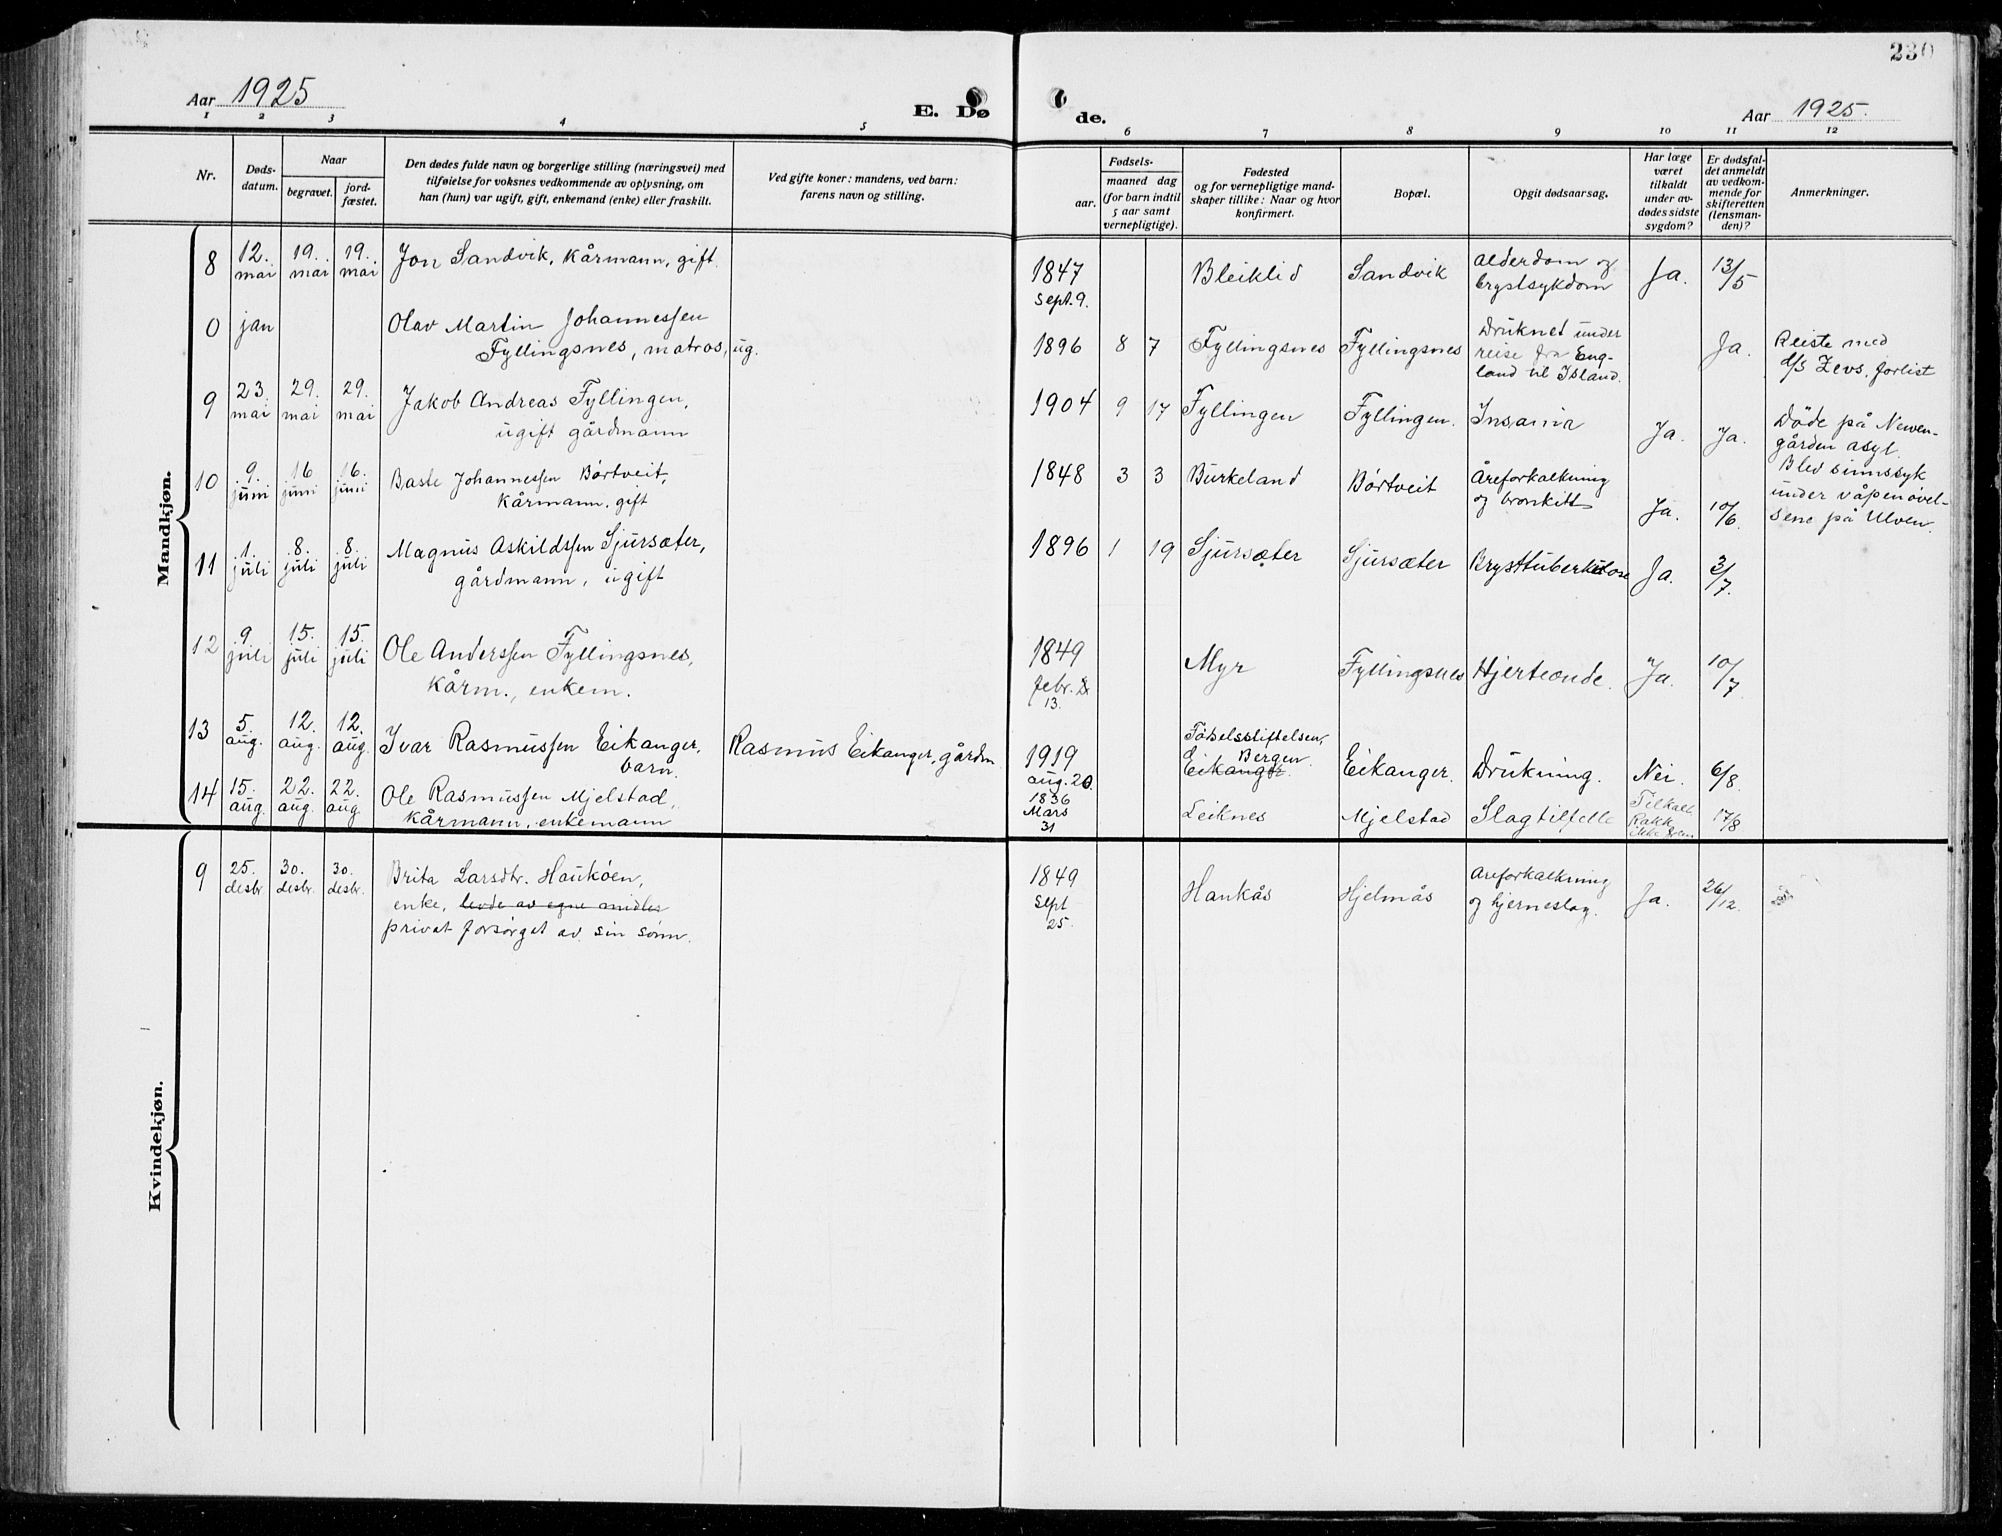 230
Aar 1925
E. Dø
de.
Aar 1925.
1 2 3 4 5 6 7 8 9 10 11 12
Nr.
Døds-
datum.
Naar
begravet.
jord-
fæstet.
Den dødes fulde navn og borgerlige stilling (næringsvei) med
tilføielse for voksnes vedkommende av oplysning, om
han (hun) var ugift, gift, enkemand (enke) eller fraskilt.
Ved gifte koner: mandens, ved barn:
farens navn og stilling.
Fødsels-
aar.
maaned dag
(for barn indtil
5 aar samt
vernepligtige).
Fødested
og for vernepligtige mand-
skaper tillike: Naar og hvor
konfirmert.
Bopæl.
Opgit dødsaarsag.
Har læge
været
tilkaldt
under av-
dødes sidste
sygdom?
Er dødsfal-
det anmeldt
av vedkom-
mende for
skifteretten
(lensman-
den)?
Anmerkninger.
Mandkjøn.
8 12. mai 19. mai 19. mai Jon Sandvik, kårmann, gift.
1847 sept. 9. Bleiklid Sandvik alderdom og
brystsykdom Ja. 13/5
0 jan Olav Martin Johannessen
Fyllingsnes, matros, ug.
1896 8 7 Fyllingsnes Fyllingsnes Druknet under
reise fra Eng-
land til Island. Ja. Reiste med
d/s Zevs, forlist
9 23. mai 29. mai 29. mai Jakob Andreas Fyllingen,
ugift gårdmann
1904 9 17 Fyllingen Fyllingen. Insania Ja. Ja. Døde på Neven-
gården asyl.
Blev sinnssyk
under våpenøvel-
sene på Ulven.
10 9. juni 16 juni 16. juni Baste Johannessen Børtveit,
kårmann, gift
1848 3 3 Burkeland Børtveit Åreforkalkning
og bronkitt Ja. 10/6.
11 1. juli 8. juli 8. juli Magnus Askildssen Sjursæter,
gårdmann, ugift
1896 1 19 Sjursæter Sjursæter Brysttuberkulose Ja. 3/7.
12 9. juli 15. juli 15. juli Ole Anderssen Fyllingsnes,
kårm., enkem.
1849 febr. 13. Myr Fyllingsnes Hjerteonde. Ja. 10/7
13 5. aug. 12. aug. 12. aug. Ivar Rasmussen Eikanger,
barn. Rasmus Eikanger, gårdm
1919 aug. 20. Fødselsstiftelsen,
Bergen
Eikanger. Eikanger. Drukning. Nei. 6/8.
14 15. aug. 22. aug. 22. aug. Ole Rasmussen Mjelstad,
kårmann, enkemann
1836 Mars 31 Leiknes Mjelstad Slagtilfelle Tilkalt
Rakk
ikke frem. 17/8
Kvindekjøn.
9 25. desbr 30. desbr. 30. desbr. Brita Larsdtr. Haukøen,
enke, levde av egne midler
privat forsørget av sin sønn.
1849 sept 25. Haukås Hjelmås Åreforkalkning
og hjerneslag. Ja. 26/12.